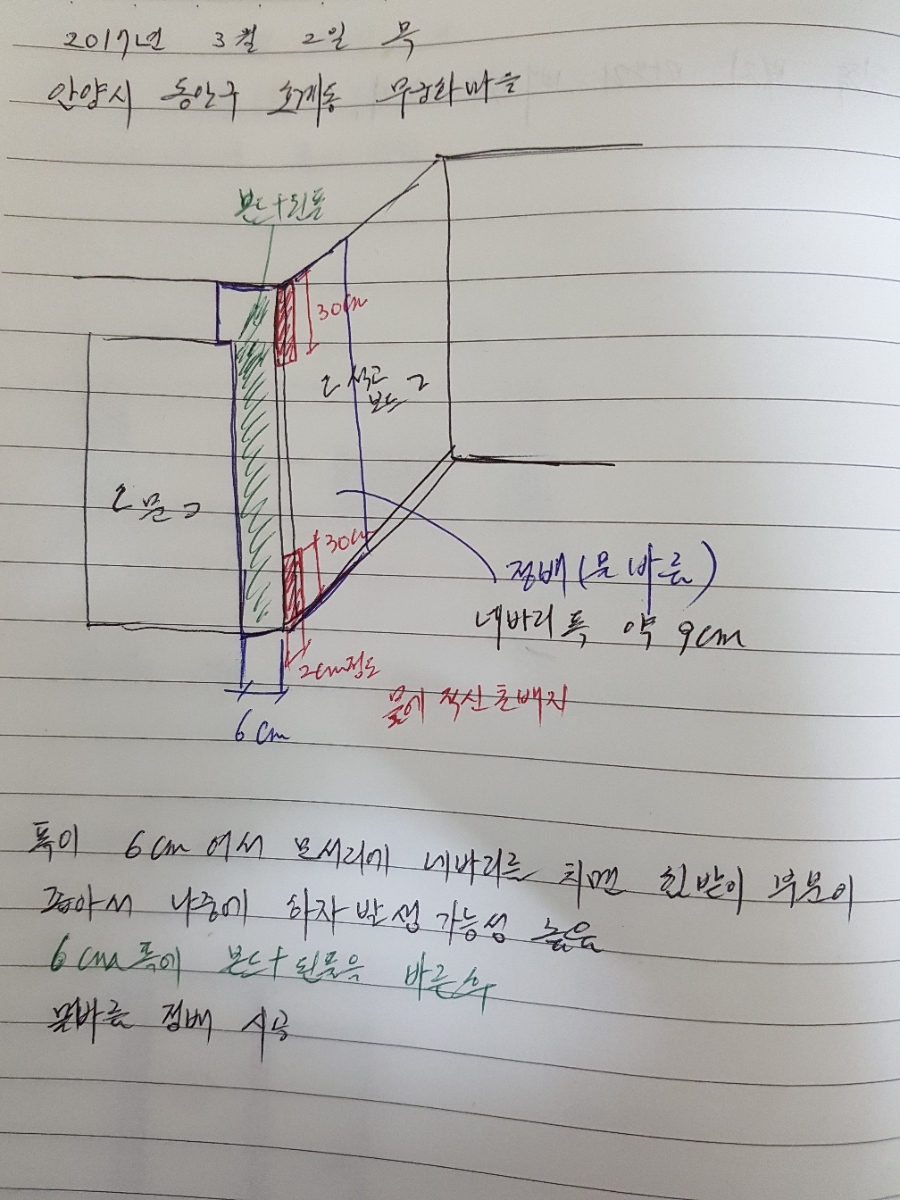 2017년 3월 2일 목
안양시 동안구 호계동 무궁화마을
본드+된풀
30cm
[석고
보드]
[문]
30cm
정배(물바름)
네바리 폭 약 9cm
2cm정도
물에 적신 초배지
6cm
폭이 6cm여서 모서리에 네바리를 치면 힘받이 부분이
좁아서 나중에 하자 발생 가능성 높음
6cm폭에 본드+된풀을 바른 후
물바름 정배 시공